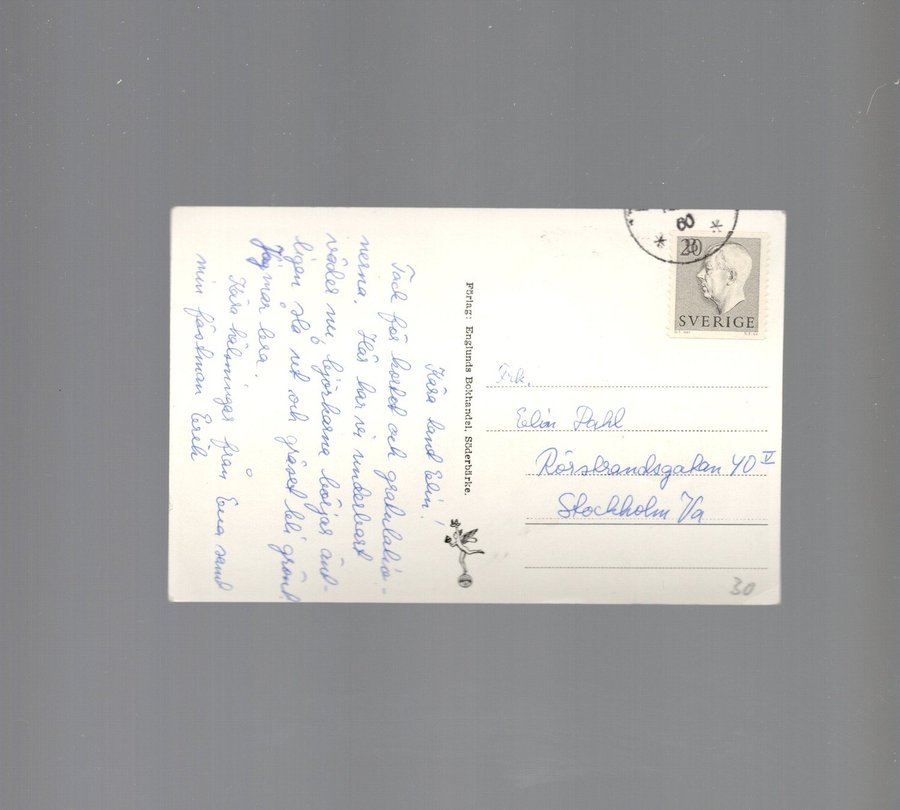 Kära tant Elin!
Tack för kortet och gratulatio-
nerna. Här har vi underbart
väder nu, björkarna börjar änt-
ligen slå ut och gräset bli grönt.
Jag mår bra.
Kära hälsningar från Eva samt
min fästman Erik
Förlag: Englunds Bokhandel, Söderbärke.
60
20
SVERIGE
Frk.
Elin Dahl
Rörstrandsgatan 40 V
Stockholm Va
30